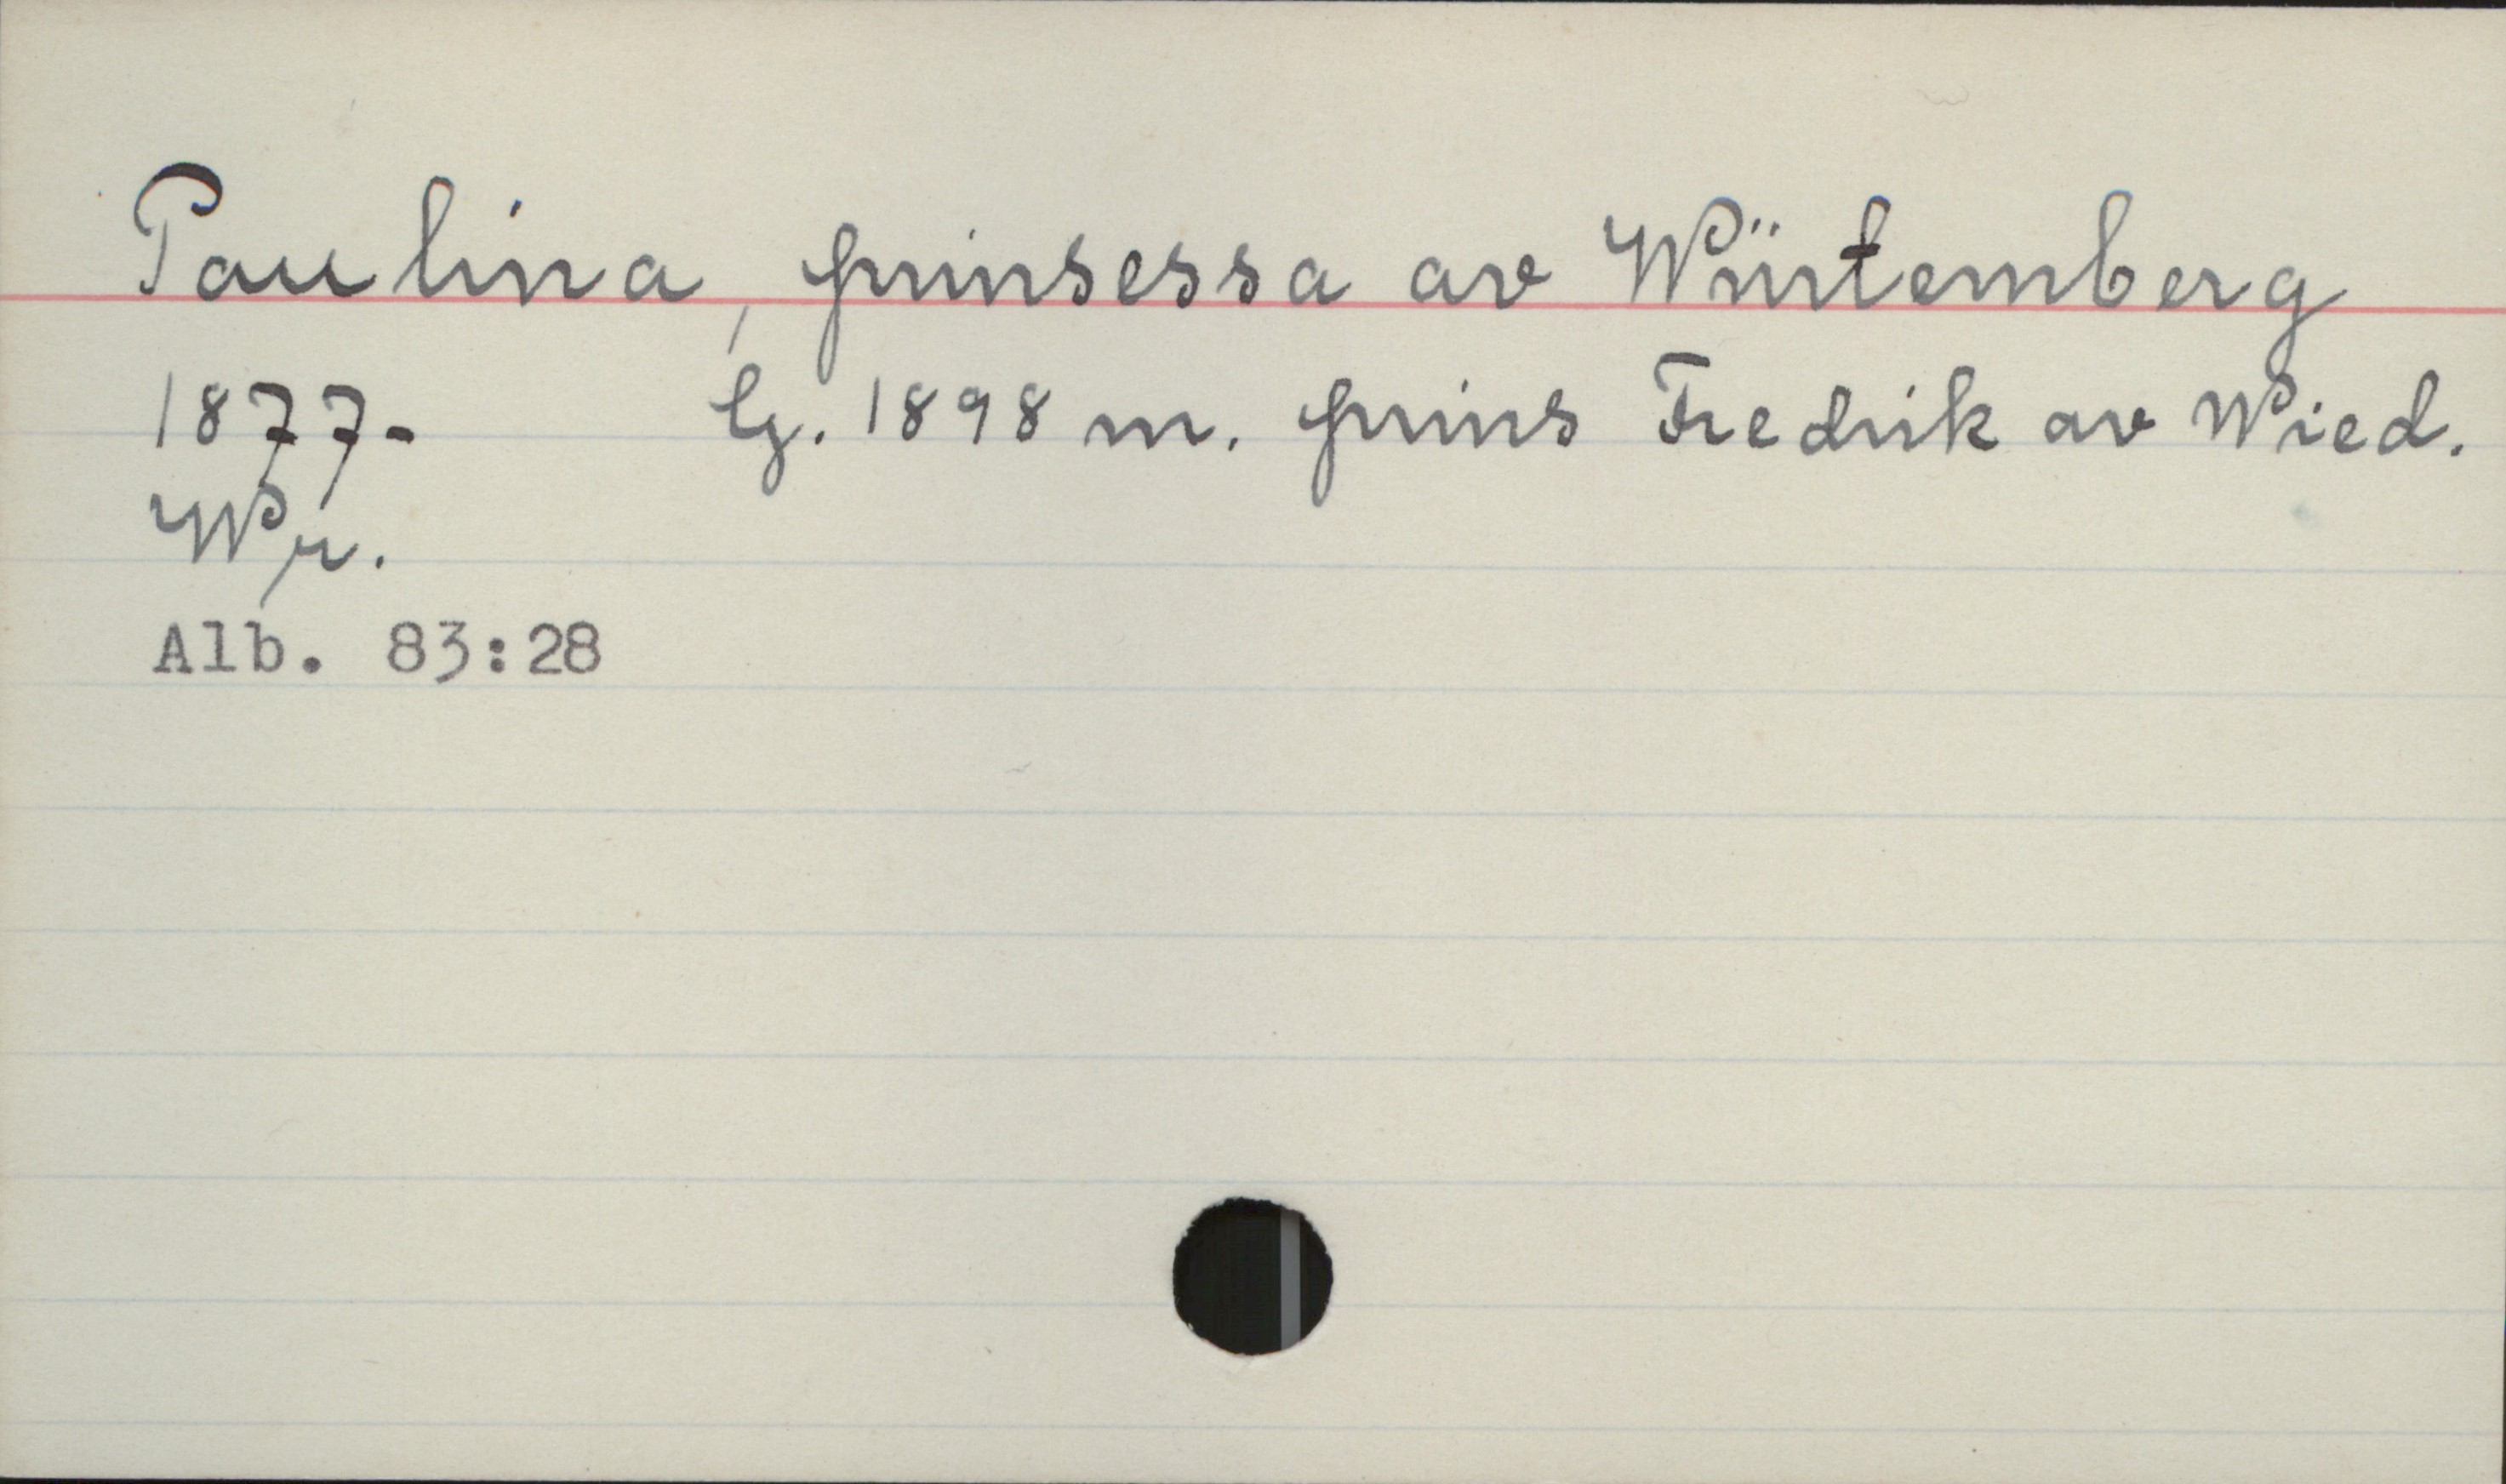 Paulina, prinsessa av Würtemberg
1877- G. 1898 m. prins Fredrik av Wied.
Wp.
Alb. 83:28